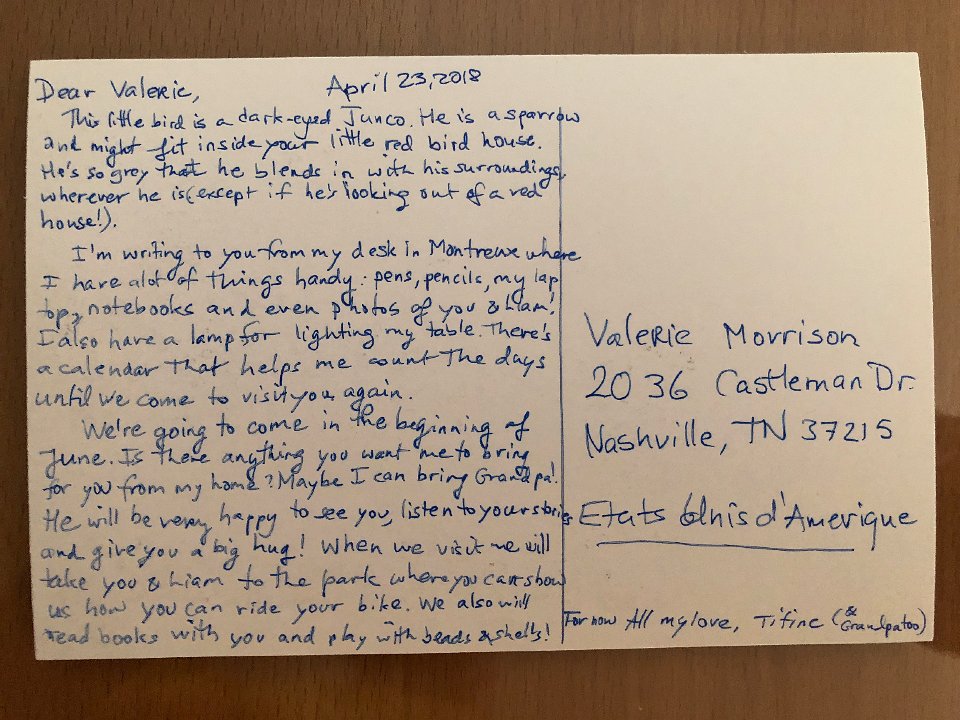 Dear Valerie, April 23, 2018
This little bird is a dark-eyed Junco. He is a sparrow
and might fit inside your little red bird house.
He's so grey that he blends in with his surroundings,
wherever he is (except if he's looking out of a red
house!).
I'm writing to you from my desk in Montreux where
I have alot of things handy: pens, pencils, my lap
top, notebooks and even photos of you & Liam!
I also have a lamp for lighting my table. There's
a calendar that helps me count the days
until we come to visit you again.
We're going to come in the beginning of
June. Is there anything you want me to bring
for you from my home? Maybe I can bring Grandpa!
He will be very happy to see you, listen to your stories
and give you a big hug! When we visit we will
take you & Liam to the park where you can show
us how you can ride your bike. We also will
read books with you and play with beads & shells!
For now All my love, Tifine (& Grandpa too)
Valerie Morrison
2036 Castleman Dr.
Nashville, TN 37215
Etats Unis d'Amerique